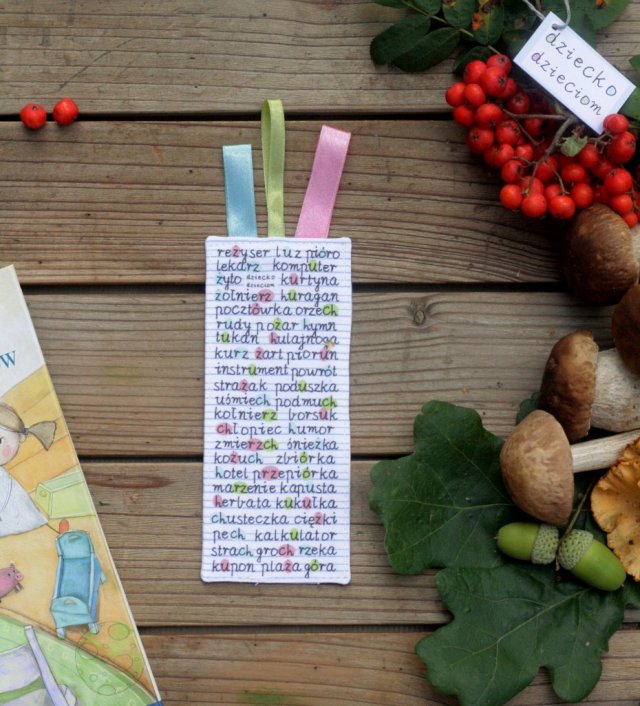 dziecko
dzieciom
reżyser luz pióro
lekarz komputer
żyto dziecko dzieciom kurtyna
żołnierz huragan
pocztówka orzech
rudy pożar hymn
tukan hulajnoga
kurz żart piorun
instrument powrót
strażak poduszka
uśmiech podmuch
kołnierz borsuk
chłopiec humor
zmierzch śnieżka
kożuch zbiórka
hotel przepiórka
marzenie kapusta
herbata kukułka
chusteczka ciężki
pech kalkulator
strach groch rzeka
kupon plaża góra
w